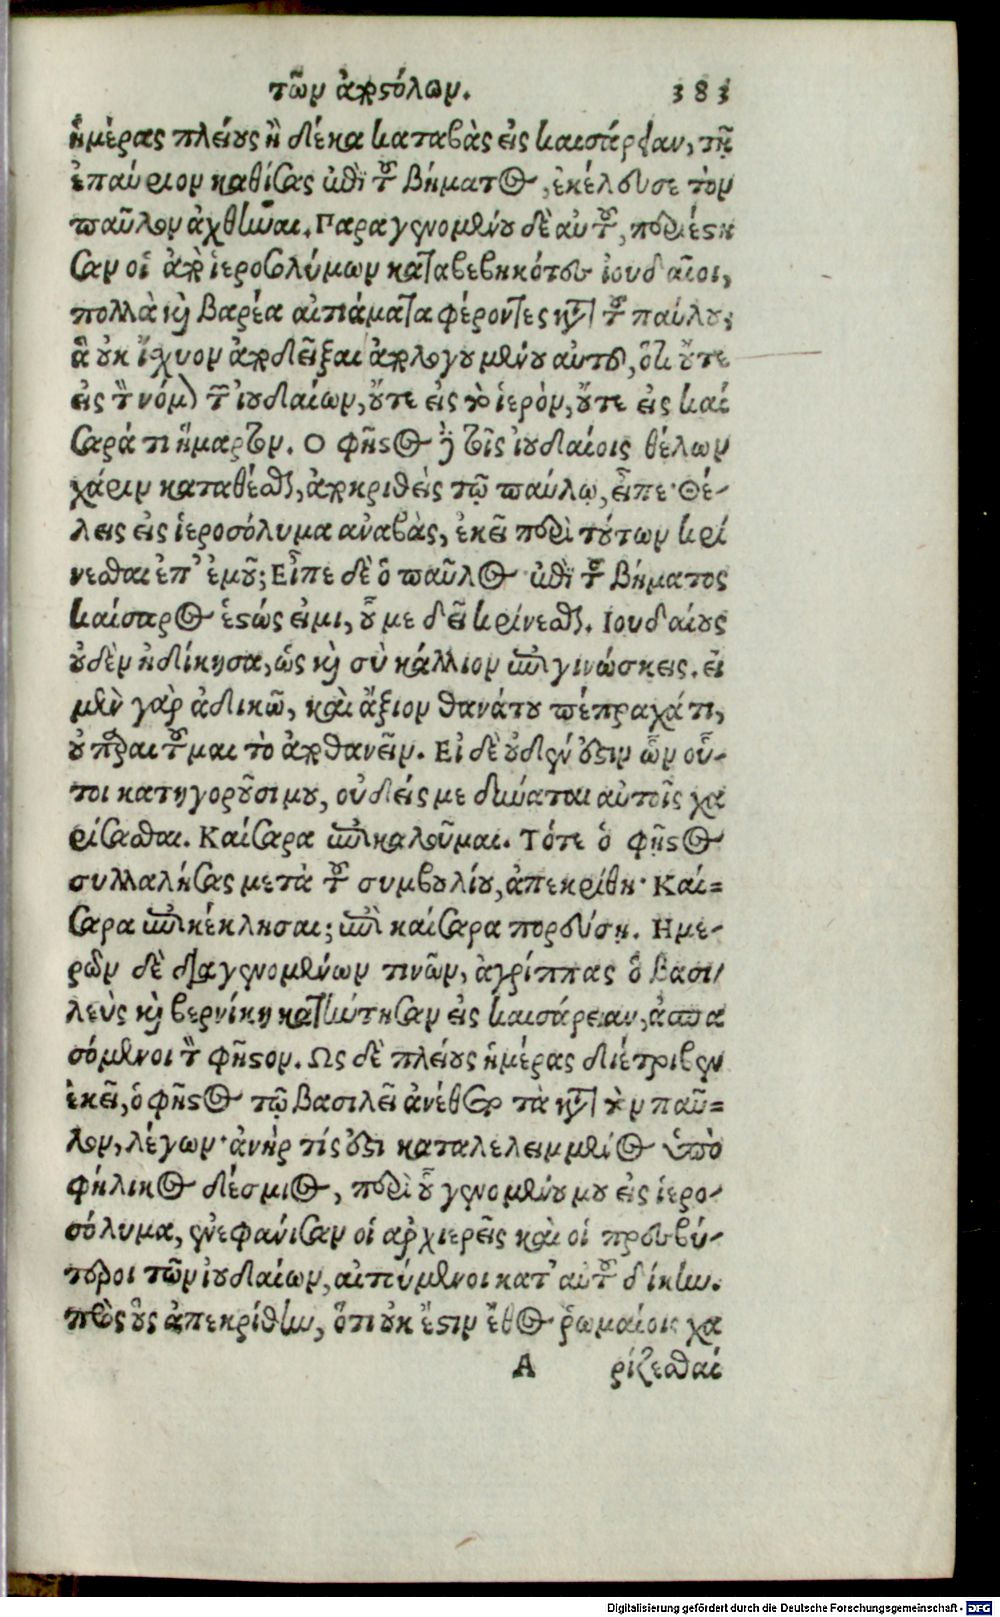 τῶν ἀποστόλων. 383
ἡμέρας πλείους ἢ δέκα καταβὰς εἰς καισάρειαν, τῇ
ἐπαύριον καθίσας ἐπὶ τοῦ βήματος, ἐκέλευσε τὸν
παῦλον ἀχθῆναι. Παραγενομένου δὲ αὐτοῦ, περιέστη
σαν οἱ ἀπὸ ἱεροσολύμων καταβεβηκότες ἰουδαῖοι,
πολλὰ καὶ βαρέα αἰτιάματα φέροντες κατὰ τοῦ παύλου,
ἃ οὐκ ἴσχυον ἀποδεῖξαι ἀπολογουμένου αὐτοῦ, ὅτι οὔτε
εἰς τὸν νόμον τῶν ἰουδαίων, οὔτε εἰς τὸ ἱερὸν, οὔτε εἰς καί
σαρά τι ἥμαρτον. Ο φῆστος δὲ τοῖς ἰουδαίοις θέλων
χάριν καταθέσθαι, ἀποκριθεὶς τῷ παύλῳ, εἶπε· Θέ-
λεις εἰς ἱεροσόλυμα αναβὰς, ἐκεῖ περὶ τούτων κρί
νεσθαι ἐπ' ἐμοῦ; Εἶπε δὲ ὁ παῦλος· ἐπὶ τοῦ βήματος
καίσαρος ἑστώς εἰμι, οὗ με δεῖ κρίνεσθαι. Ιουδαίους
οὐδὲν ἠδίκησα, ὡς καὶ σὺ κάλλιον ἐπιγινώσκεις. εἰ
μὲν γὰρ ἀδικῶ, καὶ ἄξιον θανάτου πέπραχά τι,
οὐ παραιτοῦμαι τὸ ἀποθανεῖν. Εἰ δὲ οὐδέν ἐστιν ὧν οὗ-
τοι κατηγοροῦσι μου, οὐδείς με δύναται αὐτοῖς χα
ρίσασθαι. Καίσαρα ἐπικαλοῦμαι. Τότε ὁ φῆστος
συλλαλήσας μετὰ τοῦ συμβουλίου, ἀπεκρίθη· Καί=
σαρα ἐπικέκλησαι; ἐπὶ καίσαρα πορεύσῃ. Ημε-
ρῶν δὲ διαγενομένων τινῶν, ἀγρίππας ὁ βασι/
λεὺς καὶ βερνίκη κατήντησαν εἰς καισάρειαν, ἀσπα
σόμενοι τὸν φῆστον. Ως δὲ πλείους ἡμέρας διέτριβεν
ἐκεῖ, ὁ φῆστος τῷ βασιλεῖ ἀνέθετο τὰ κατὰ τὸν παῦ=
λον, λέγων· ἀνήρ τίς ἐστι καταλελειμμένος ὑπὸ
φήλικος δέσμιος, περὶ οὗ γενομένου μου εἰς ἱερο-
σόλυμα, ἐνεφάνισαν οἱ αρχιερεῖς καὶ οἱ πρεσβύ-
τεροι τῶν ἰουδαίων, αἰτούμενοι κατ' αὐτοῦ δίκην.
πρὸς οὓς ἀπεκρίθην, ὅτι οὐκ ἔστιν ἔθος ῥωμαίοις χα
A ρίζεσθαί
Digitalisierung gefördert durch die Deutsche Forschungsgemeinschaft - DFG